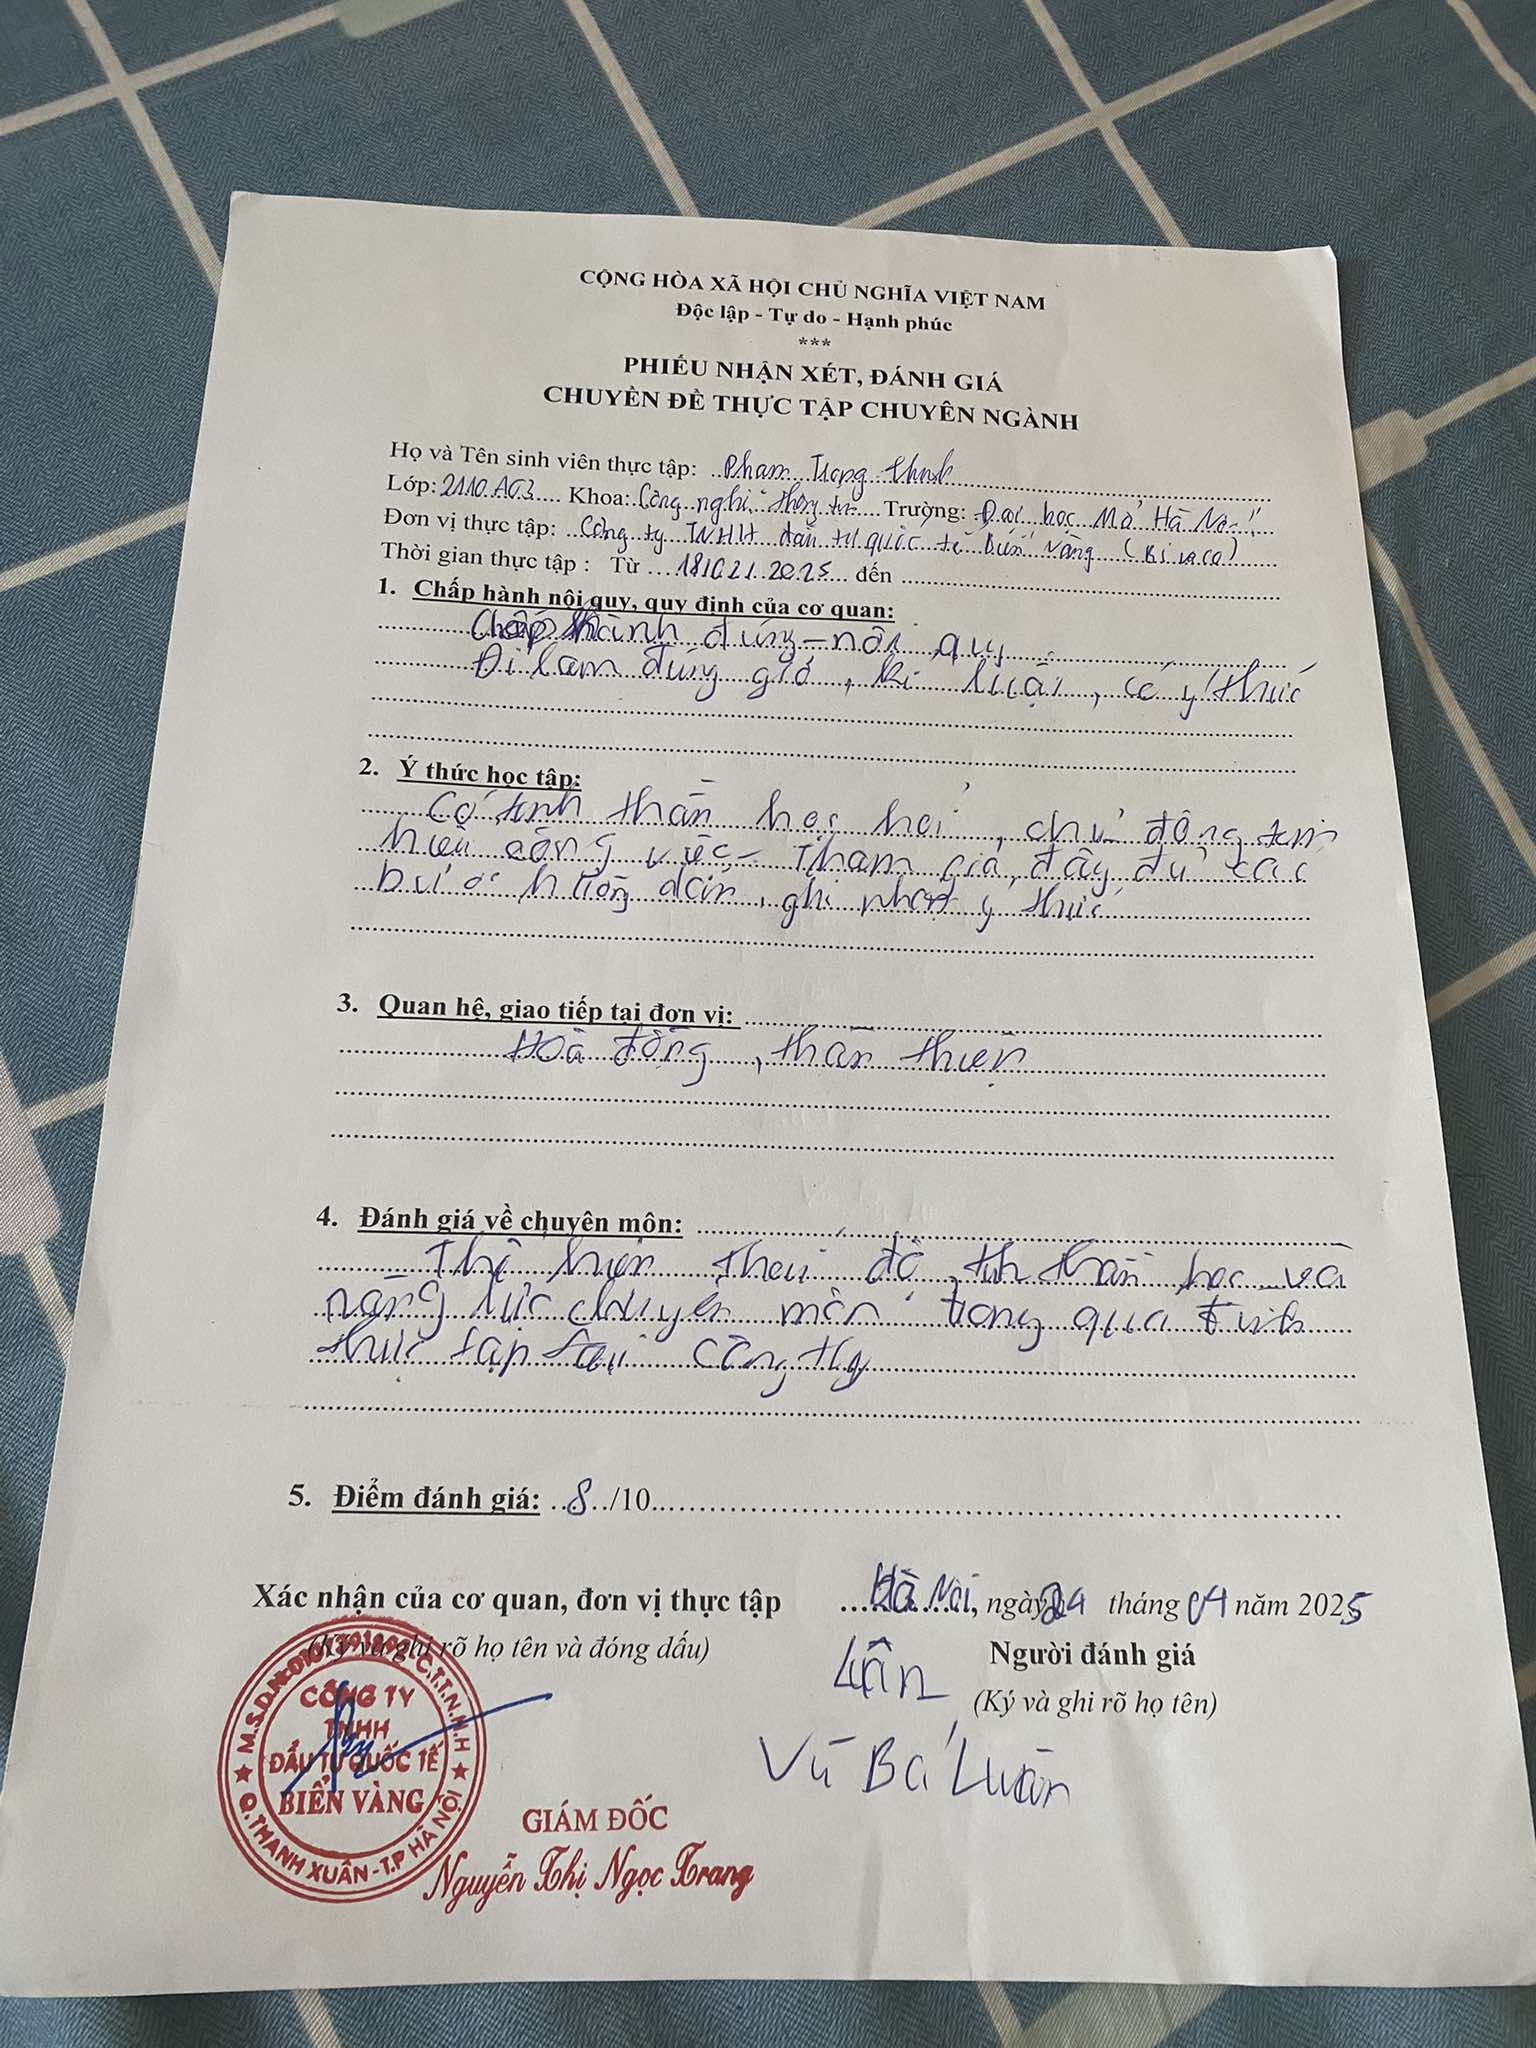 CỘNG HÒA XÃ HỘI CHỦ NGHĨA VIỆT NAM
Độc lập - Tự do - Hạnh phúc
***
PHIẾU NHẬN XÉT, ĐÁNH GIÁ
CHUYÊN ĐỀ THỰC TẬP CHUYÊN NGÀNH
Họ và Tên sinh viên thực tập: Phạm Trọng
Lớp: 2110A03 Khoa: Công nghệ thông tin Trường: Đại học Mở Hà Nội
Đơn vị thực tập: Công ty TNHH đầu tư quốc tế Biển Vàng (Bivaco)
Thời gian thực tập : Từ 18/02/2025 đến
1. Chấp hành nội quy, quy định của cơ quan:
Chấp hành đúng nội quy
Đi làm đúng giờ, kỉ luật, có ý thức
2. Ý thức học tập:
Có tinh thần học hỏi, chủ động tìm
hiểu công việc - Tham gia đầy đủ các
bước hướng dẫn, ghi nhận ý thức
3. Quan hệ, giao tiếp tại đơn vị:
Hoà đồng, thân thiện
4. Đánh giá về chuyên môn:
Thể hiện thái độ, tinh thần học và
năng lực chuyên môn trong quá trình
thực tập tại công ty
5. Điểm đánh giá: 8/10
Xác nhận của cơ quan, đơn vị thực tập
Hà Nội, ngày 24 tháng 04 năm 2025
(Ký và ghi rõ họ tên và đóng dấu)
Người đánh giá
(Ký và ghi rõ họ tên)
Luân
Vũ Bá Luân
M.S.D.N: C.T.T.N.H.H
CÔNG TY
TNHH
ĐẦU TƯ QUỐC TẾ
BIỂN VÀNG
Q.THANH XUÂN - T.P HÀ NỘI
GIÁM ĐỐC
Nguyễn Thị Ngọc Trang